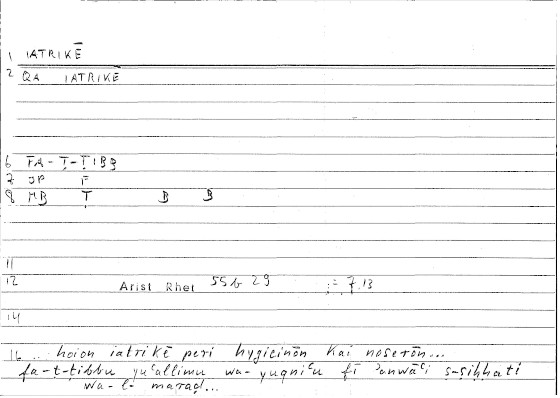 1 IATRIKĒ
2 QA IATRIKĒ
6 FA-Ṭ-ṬIBB
7 JP F
8 MB Ṭ B B
11
12 Arist Rhet 55b 29 := 7.13
14
16 ... hoion iatrikē peri hygieinōn kai noserōn...
fa-ṭ-ṭibbu yuʿallimu wa-yuqniʿu fī ʾanwāʿi ṣ-ṣiḥḥati
wa-l-maraḍ...